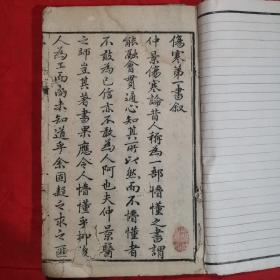 傷寒第一書叙
仲景傷寒論昔人称為一部懵懂之書謂
能融會貫通心知其所以然而不懵懂者
不敢為已信亦不敢為人阿也夫仲景醫
之師豈其著書果應令人懵懂乎抑後
人為工而尚未知道乎余固疑之求之匪